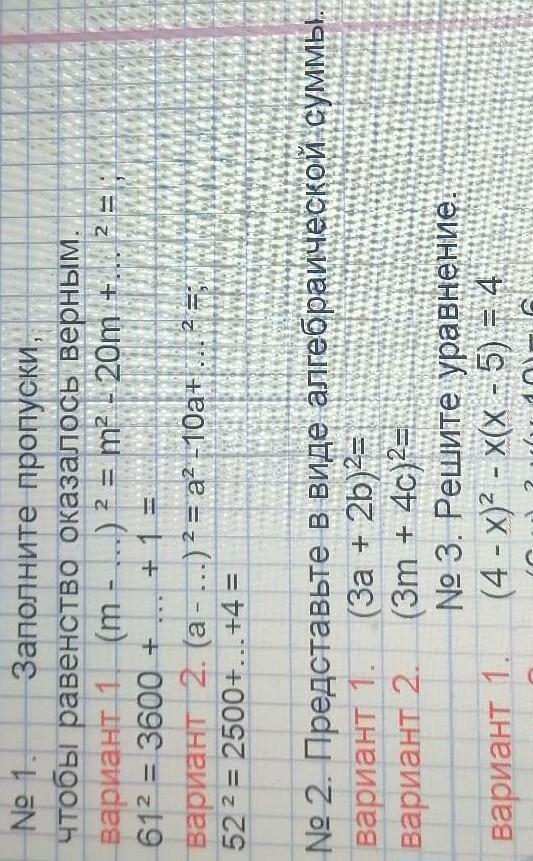 № 1. Заполните пропуски,
чтобы равенство оказалось верным.
вариант 1. (m - ...) ² = m² - 20m +... ² = ;
61² = 3600 + ... + 1 =
вариант 2. (a - ...) ² = a² -10a+ ... ² =;
52 ² = 2500+...+4 =
№ 2. Представьте в виде алгебраической суммы.
вариант 1. (3a + 2b)²=
вариант 2. (3m + 4c)²=
№ 3. Решите уравнение.
вариант 1. (4 - x)² - x(x - 5) = 4